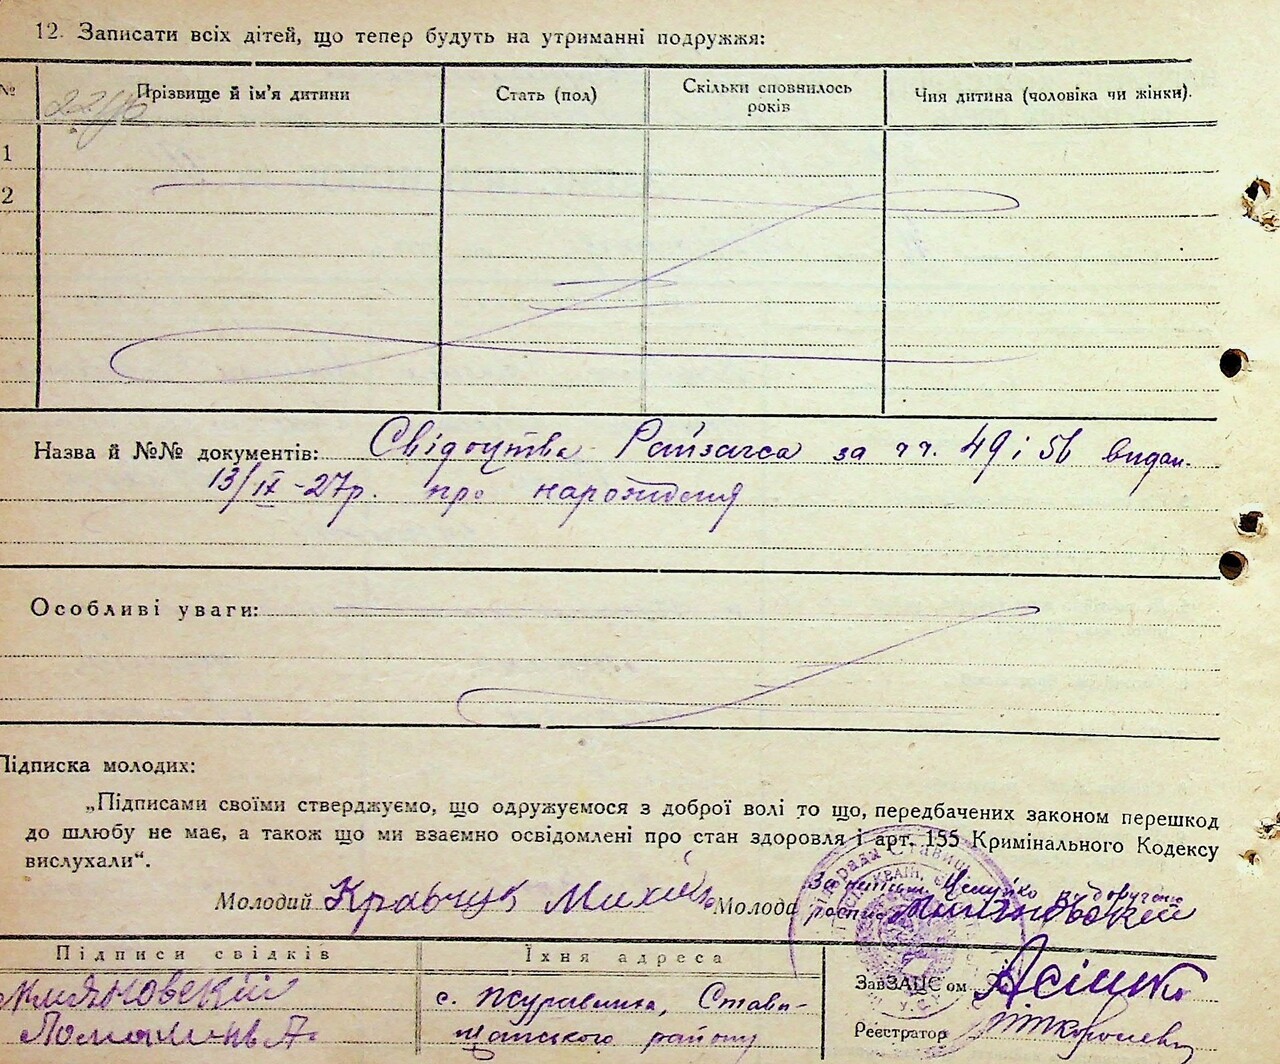 12. Записати всіх дітей, що тепер будуть на утриманні подружжя:
№ Прізвище й ім'я дитини Стать (пол) Скільки сповнилось років Чия дитина (чоловіка чи жінки).
1
2
Назва й №№ документів: Свідоцтва Райзагса за чч. 49 і 56 видан.
13/IX-27р. про народженя
Особливі уваги:
Підписка молодих:
„Підписами своїми стверджуємо, що одружуємося з доброї волі то що, передбачених законом перешкод
до шлюбу не має, а також що ми взаємно освідомлені про стан здоровля і арт. 155 Кримінального Кодексу
вислухали“.
Молодий Кравчук Михаіл Молода За непис. по доручен.
роспис
Підписи свідків Їхня адреса
с. Журавлиха, Стави-
щанського району
ЗавЗАЦС'ом
Реєстратор